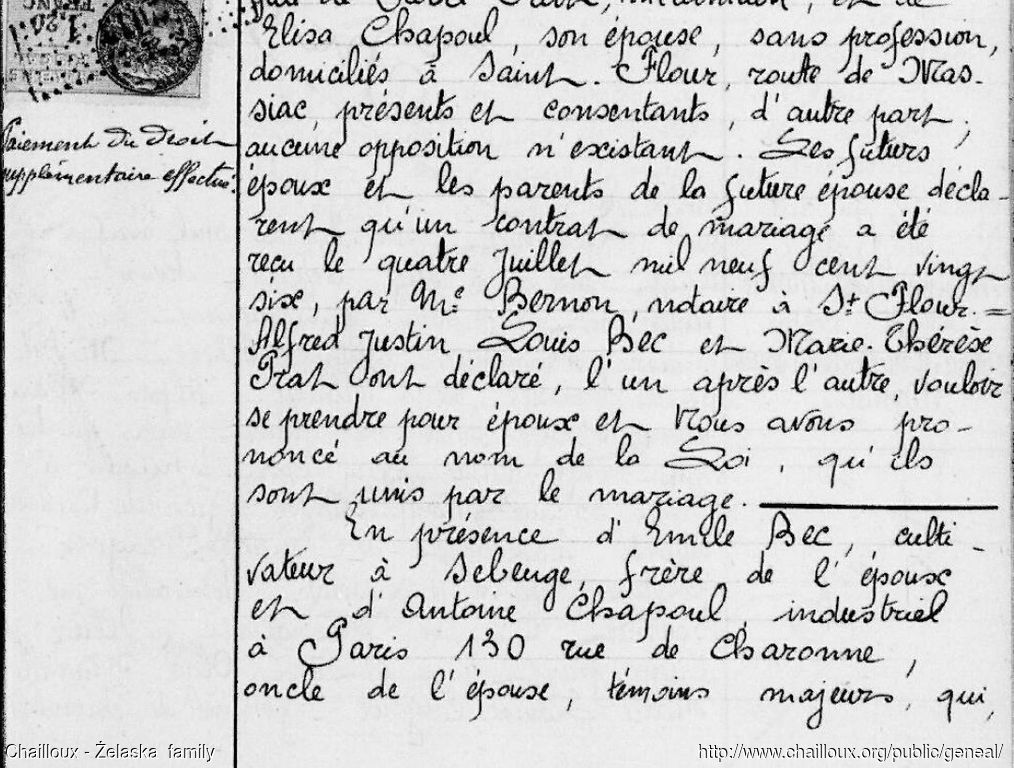 1.20
FRANC
Paiement du droit
supplémentaire effectué.
Elisa Chapoul, son épouse, sans profession,
domiciliés à Saint-Flour, route de Mas-
siac, présents et consentants, d'autre part,
aucune opposition n'existant. Les futurs
époux et les parents de la future épouse décla-
rent qu'un contrat de mariage a été
reçu le quatre Juillet mil neuf cent vingt
six, par Me Bernon, notaire à St Flour.=
Alfred Justin Louis Bec et Marie-Thérèse
Prat ont déclaré, l'un après l'autre vouloir
se prendre pour époux et Nous avons pro-
noncé au nom de la Loi, qu'ils
sont unis par le mariage.
En présence d'Emile Bec, culti-
vateur à Sebeuge, frère de l'époux
et d'Antoine Chapoul, industriel
à Paris 130 rue de Charonne,
oncle de l'épouse, témoins majeurs, qui,
Chailloux - Żelaska family
http://www.chailloux.org/public/geneal/